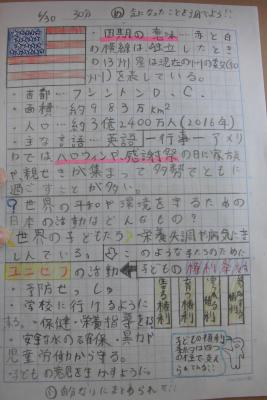 6/30 30分 め 気になったことを調べよう!!
・国旗の意味…赤と白
の横線は独立したとき
の13州 星は現在の州の数(50
州)を表している。
・首都…ワシントンD.C.
・面積…約983万km²
・人口…約3億2400万人(2016年)
・主な言語…英語 ー行事ーアメリ
カではハロウィンや感謝祭の日に家族
や、親せきが集まって多勢でともに
過ごすことが多い。
世界の平和や環境を守るための
日本の活動はどんなもの?
世界の子どもたち 栄養失調や病気で苦
しんでいる。このような子たちのために
ユニセフの活動 子どもの権利条約
・予防せっしゅ
・学校に行けるように
する。・保健・栄養指導をする
・安全な水の確保・暴力や
児童労働から守る。
・子どもの意見を生かそうと。
生きる権利
育つ権利
守られる権利
子どもの権利